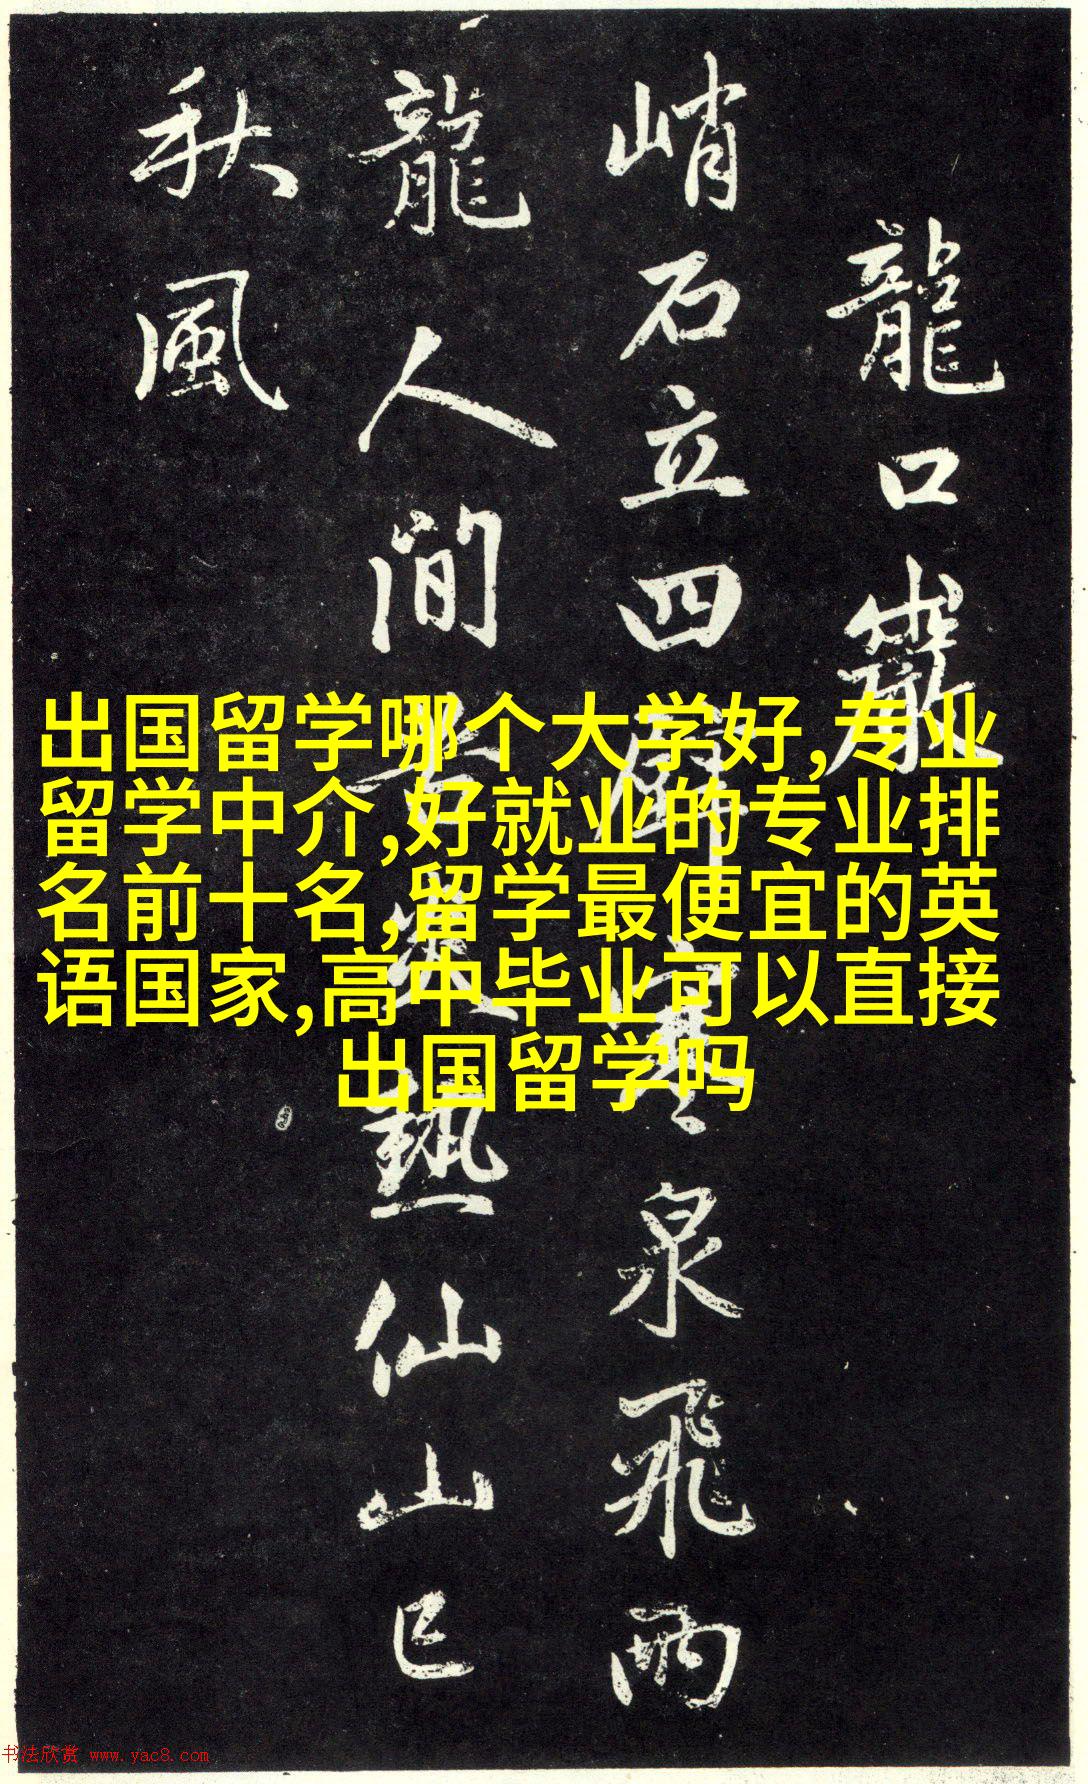 龍口巖
峭石立四寒泉飛雨
龍人間熱仙山已
秋風
出国留学哪个大学好,专业
留学中介,好就业的专业排
名前十名,留学最便宜的英
语国家,高中毕业可以直接
出国留学吗
书法欣赏 www.yac8.com